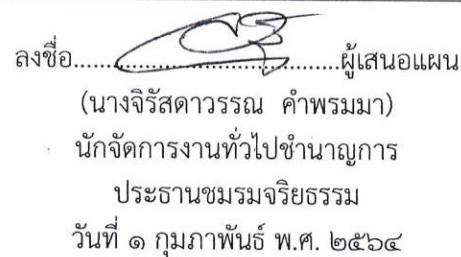 ลงชื่อ.......................................ผู้เสนอแผน
(นางจิรัสดาวรรณ คำพรมมา)
นักจัดการงานทั่วไปชำนาญการ
ประธานชมรมจริยธรรม
วันที่ ๑ กุมภาพันธ์ พ.ศ. ๒๕๖๔